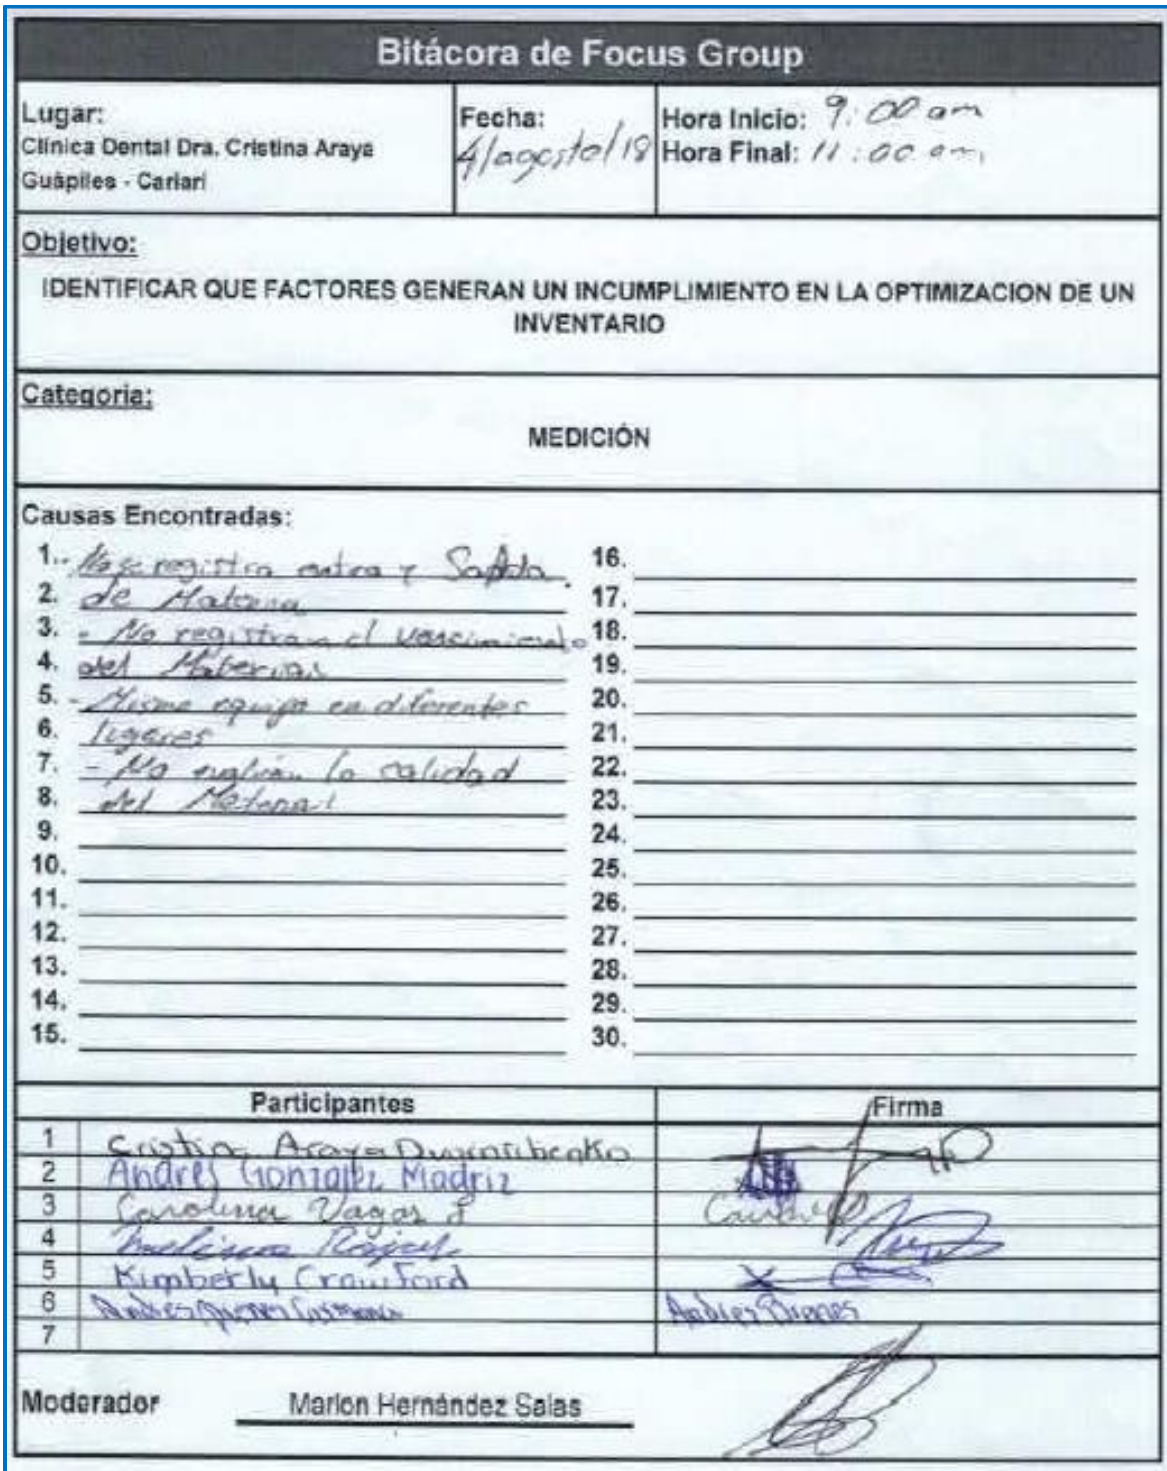 Bitácora de Focus Group
Lugar:
Clínica Dental Dra. Cristina Araya
Guápiles - Cariari
Fecha:
4/agosto/18
Hora Inicio: 9:00 am
Hora Final: 11:00 am
Objetivo:
IDENTIFICAR QUE FACTORES GENERAN UN INCUMPLIMIENTO EN LA OPTIMIZACION DE UN
INVENTARIO
Categoria:
MEDICIÓN
Causas Encontradas:
1.. No se registra entra y Salida
2. de Material
3. - No registran el vencimiento
4. del Material
5. - Mismo equipo en diferentes
6. lugares
7. - No evalúan la calidad
8. del Material
9.
10.
11.
12.
13.
14.
15.
16.
17.
18.
19.
20.
21.
22.
23.
24.
25.
26.
27.
28.
29.
30.
Participantes
Firma
1 Cristina Araya
2 Andres Gonzalez Madriz
3 Carolina Vagas
4
5 Kimberly Crawford
6 Andres Andres
7
Moderador Marlon Hernández Salas